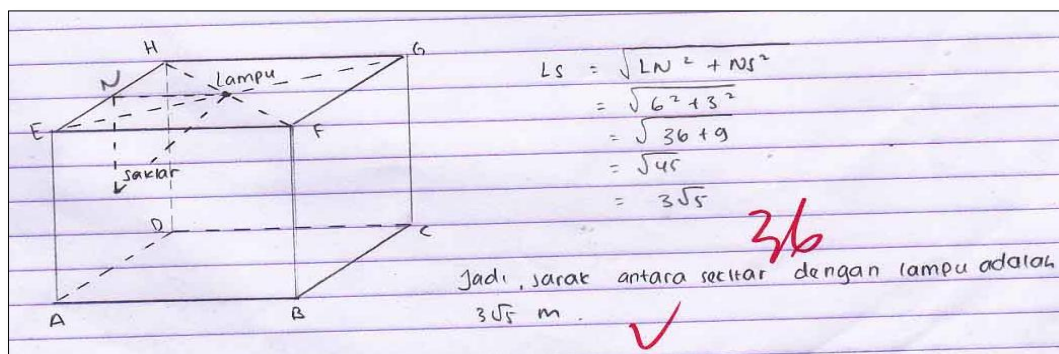 H
G
N
Lampu
E
F
saklar
D
C
A
B
LS = √LN² + NS²
= √6² + 3²
= √36 + 9
= √45
= 3√5
36
Jadi, jarak antara secltar dengan lampu adalah
3√5 m.